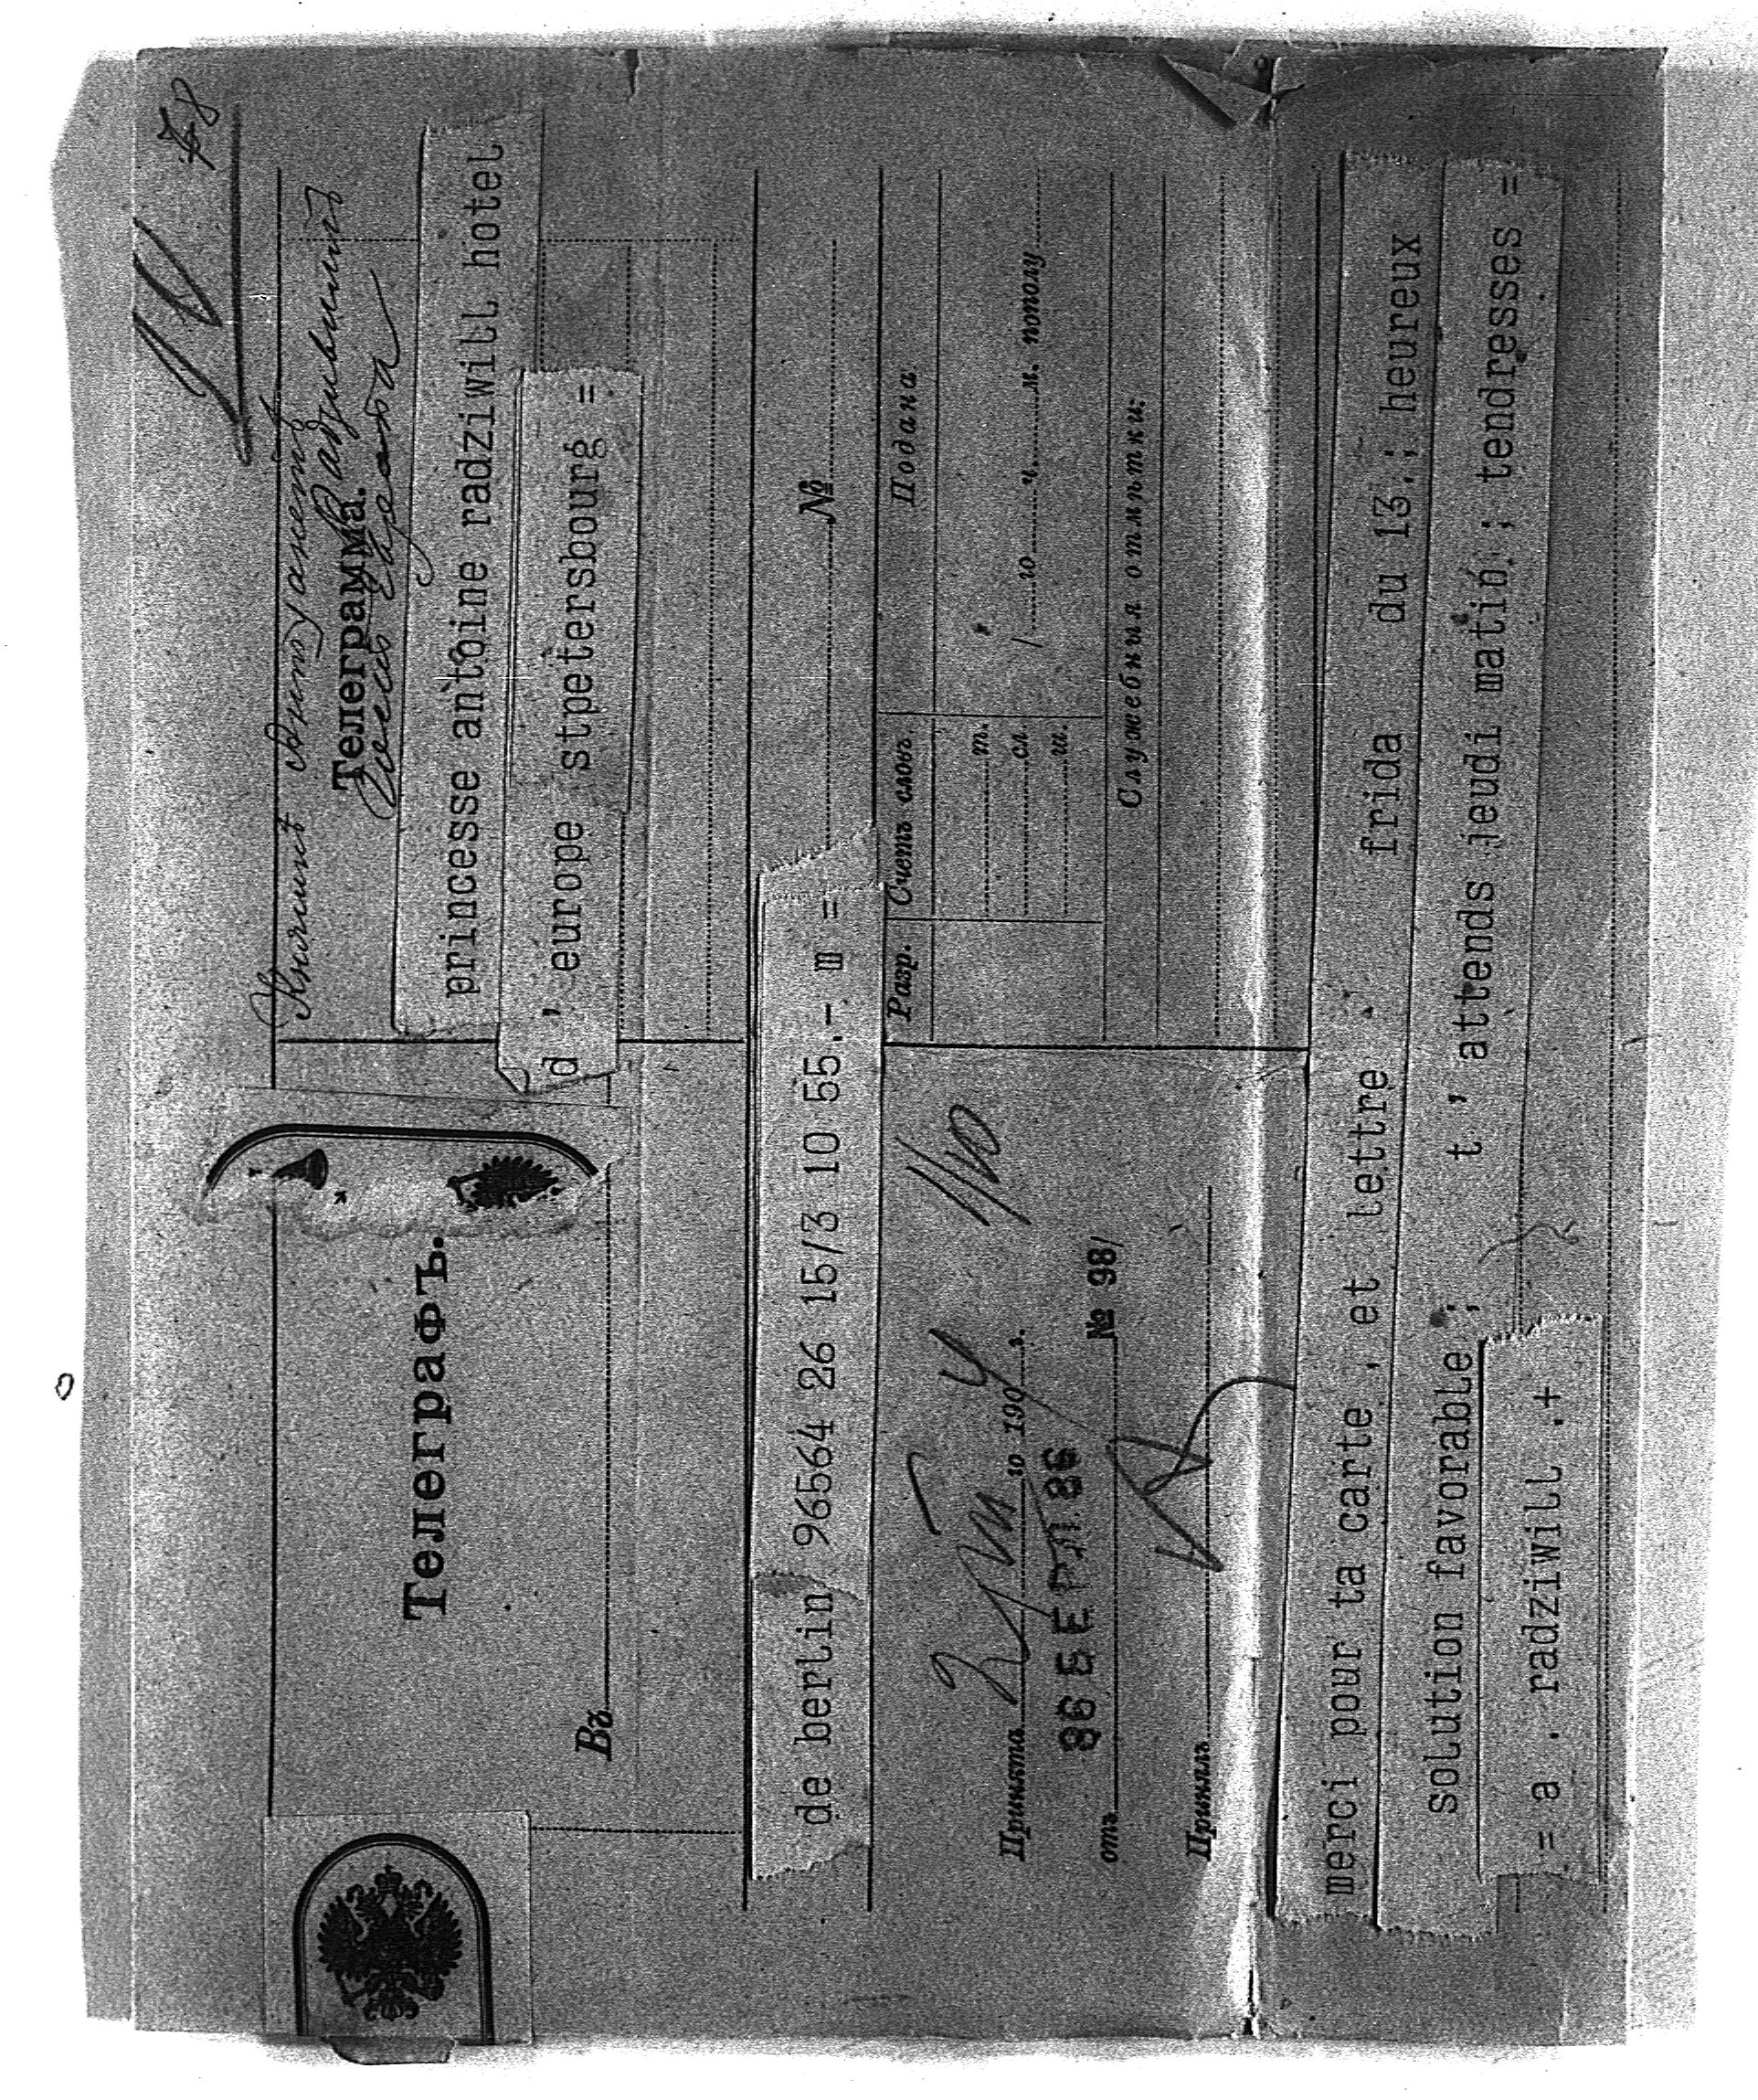 48
Княгинѣ Антуанетѣ
Телеграмма. Радзивиллъ
princesse antoine radziwill hotel
d , europe stpetersbourg =
Телеграфъ.
Въ
№
de berlin 96564 26 15/3 10 55.- m =
Разр. Счетъ словъ. Подана
т.
сл.
ш.
/ го ч. м. пополу
Служебныя отмѣтки:
Принята го 1904 г.
отъ № 98/
Принялъ
merci pour ta carte , et lettre . frida du 13.; heureux
solution favorable ; t , attends jeudi matin ; tendresses =
= a . radziwill .+